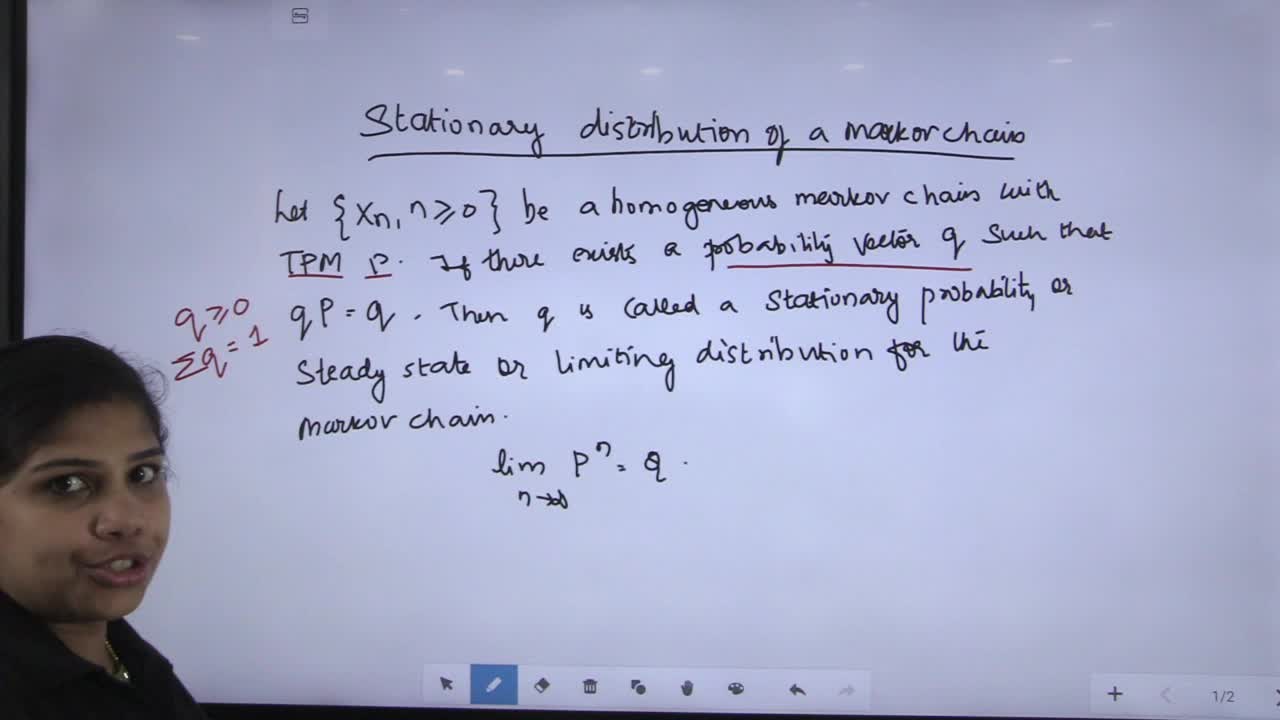 Stationary distribution of a markov chain
Let {Xn, n ≥ 0} be a homogeneous markov chain with
TPM P. If there exists a probability vector q such that
q ≥ 0
qP = q. Then q is called a stationary probability or
Σq = 1
steady state or limiting distribution for the
markov chain.
lim P^n = Q.
n→∞
1/2